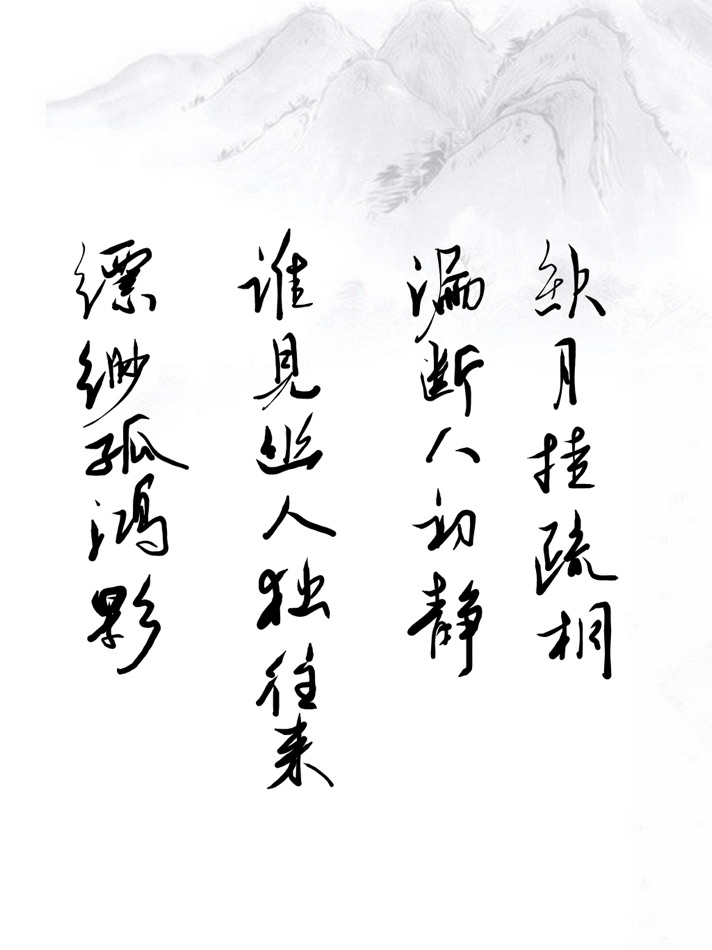 缺月挂疏桐
漏断人初静
谁見幽人独往来
缥缈孤鸿影